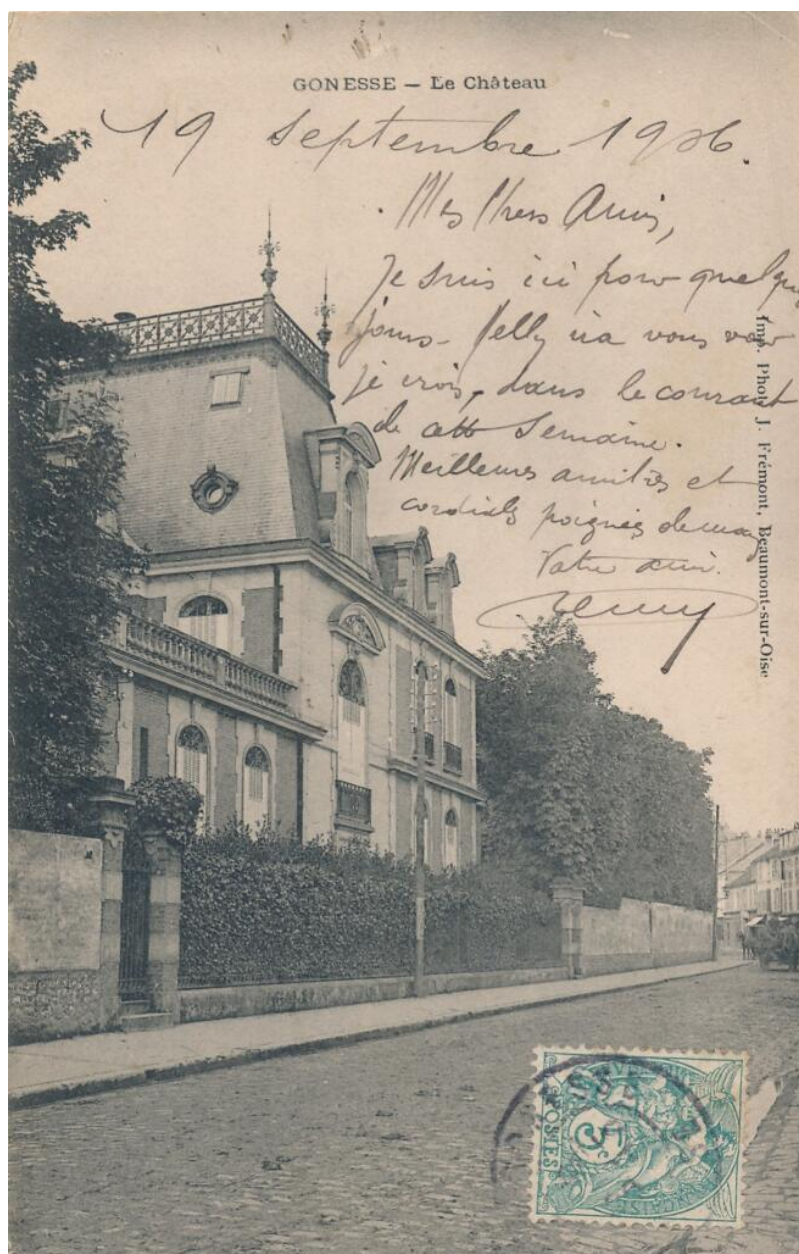 GONESSE — Le Château
19 Septembre 1906.
Mes Chers Amis,
Je suis ici pour quelques
jours. Nelly ira vous voir
je crois, dans le courant
de cette Semaine.
Meilleures amitiés et
cordiales poignées de mains
Votre ami.
Imp. Phot. J. Frémont, Beaumont-sur-Oise
5c
POSTES